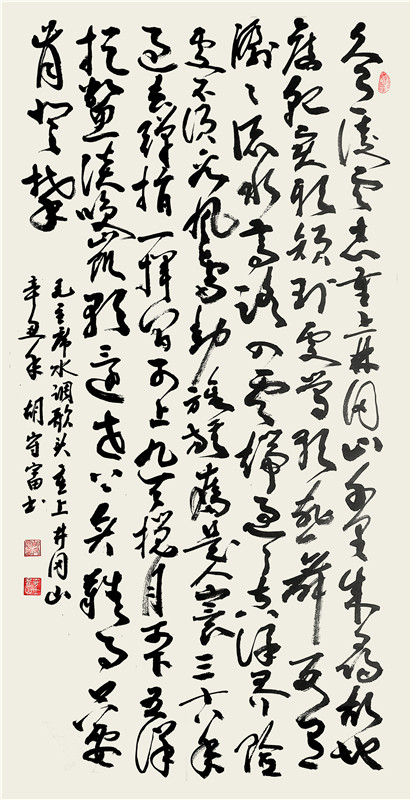 久有凌云志重上井冈山千里来寻故地
旧貌变新颜到处莺歌燕舞更有
潺潺流水高路入云端过了黄洋界险
处不须看风雷动旌旗奋是人寰三十八年
过去弹指一挥间可上九天揽月可下五洋
捉鳖谈笑凯歌还世上无难事只要
肯登攀
毛主席水调歌头重上井冈山
辛丑年胡守富书